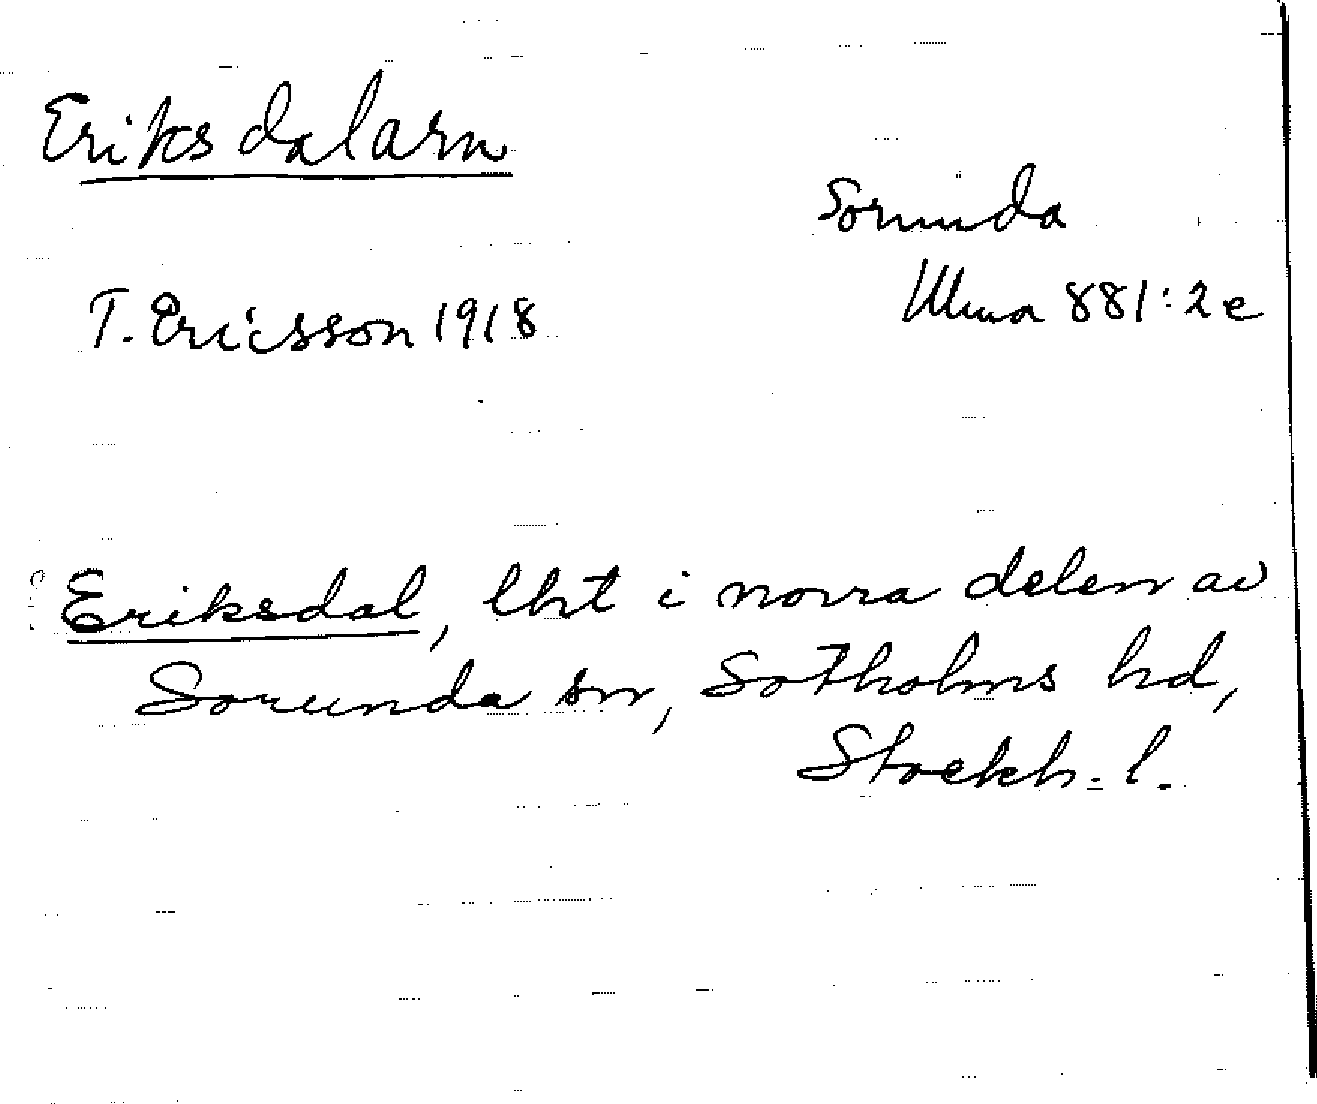 Eriksdalarn
Sorunda
T. Ericsson 1918
Ulma 881:2e
Eriksdal, lht i norra delen av
Sorunda sn, Sotholms hd,
Stockh. l.